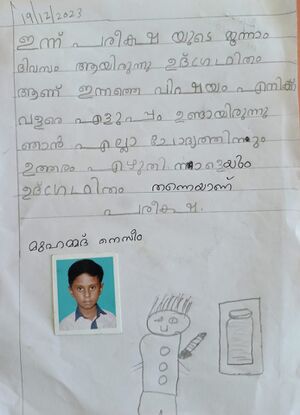 19/12/2023
ഇന്ന് പരീക്ഷ യുടെ മൂന്നാം
ദിവസം ആയിരുന്നു ഉദ്ഗ്രഥിതം
ആണ് ഇന്നത്തെ വിഷയം എനിക്ക്
വളരെ എളുപ്പം ഉണ്ടായിരുന്നു
ഞാൻ എല്ലാ ചോദ്യത്തിന്നും
ഉത്തരം എഴുതി നാളെയും
ഉദ്ഗ്രഥിതം തന്നെയാണ്
പരീക്ഷ.
മുഹമ്മദ് നെസീം